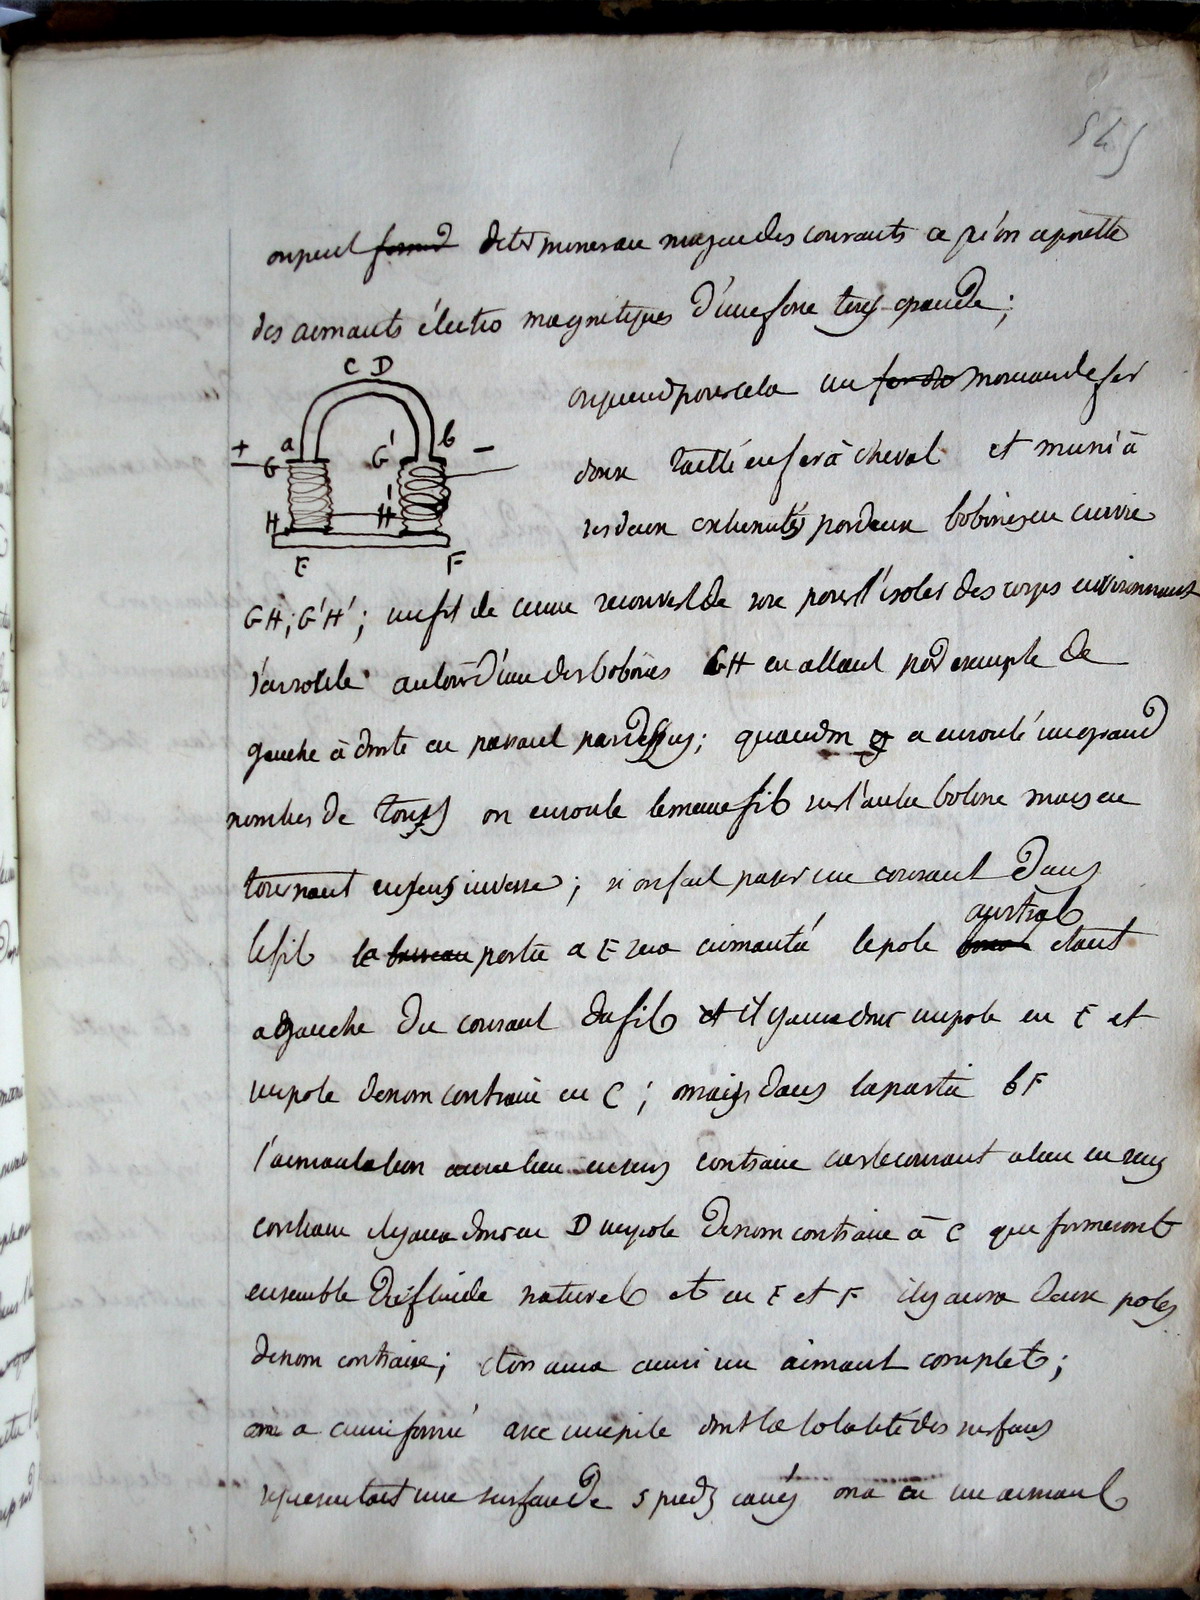 545
on peut formed determiner au moyen des courants ce qu'on appelle
des aimants électro magnétiques d'une force très grande ;
C D
on prend pour cela un fer do morceau de fer
+ a G' b -
G
doux taillé en fer à cheval et muni à
H H'
ses deux extremités par deux bobines en cuivre
E F
GH ; G'H' ; un fil de cuivre recouvert de soie pour l'isoler des corps environnants
s'enroule autour d'une des bobines GH en allant par exemple de
gauche à droite en passant par dessus ; quand on a enroulé un grand
nombre de tours on enroule le meme fil sur l'autre bobine mais en
tournant en sens inverse ; si on fait passer un courant dans
austral
le fil la partie a E sera aimantée le pole étant
a gauche du courant du fil et il y aura donc un pole en E et
un pole de nom contraire en C ; mais dans la partie b F
l'aimantation aura lieu en sens contraire car le courant a lieu en sens
contraire il y aura donc en D un pole de nom contraire à C qui formeront
ensemble du fluide naturel et en E et F il y aura deux poles
de nom contraire ; et on aura ainsi un aimant complet ;
on a ainsi formé avec une pile dont la totalité des surfaces
représentait une surface de 5 pieds carrés on a eu un aimant